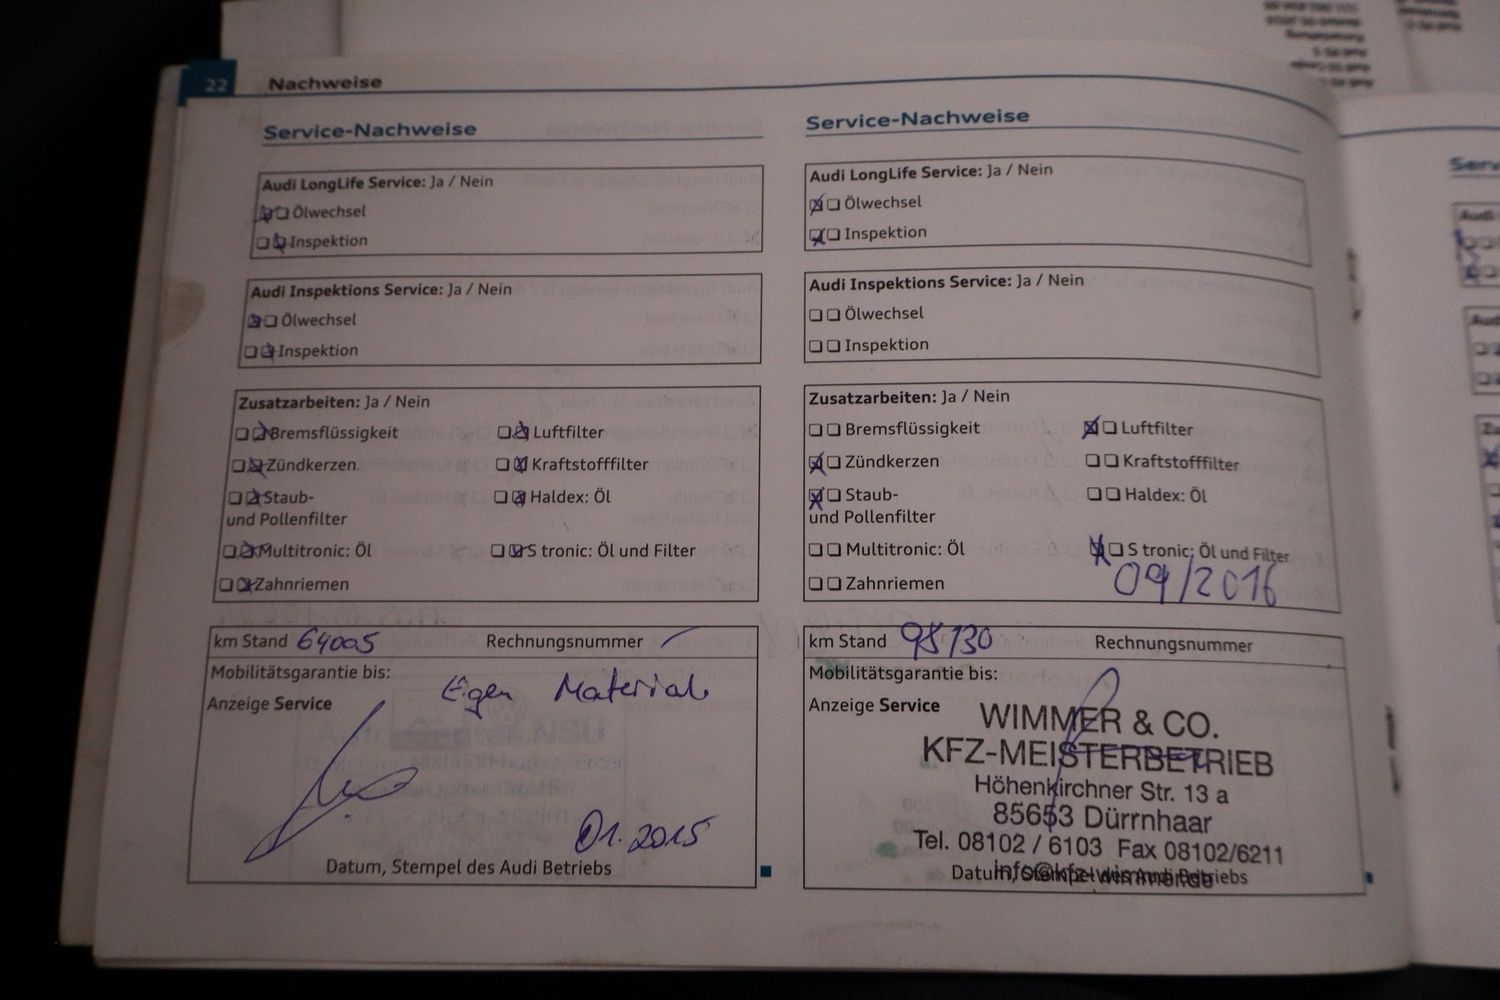 22 Nachweise
Service-Nachweise
Audi LongLife Service: Ja / Nein
Ölwechsel
Inspektion
Audi Inspektions Service: Ja / Nein
Ölwechsel
Inspektion
Zusatzarbeiten: Ja / Nein
Bremsflüssigkeit Luftfilter
Zündkerzen Kraftstofffilter
Staub- Haldex: Öl
und Pollenfilter
Multitronic: Öl S tronic: Öl und Filter
Zahnriemen
km Stand 64005 Rechnungsnummer
Mobilitätsgarantie bis:
Eigen Material
Anzeige Service
01.2015
Datum, Stempel des Audi Betriebs
Service-Nachweise
Audi LongLife Service: Ja / Nein
Ölwechsel
Inspektion
Audi Inspektions Service: Ja / Nein
Ölwechsel
Inspektion
Zusatzarbeiten: Ja / Nein
Bremsflüssigkeit Luftfilter
Zündkerzen Kraftstofffilter
Staub- Haldex: Öl
und Pollenfilter
Multitronic: Öl S tronic: Öl und Filter
Zahnriemen 09/2016
km Stand 98130 Rechnungsnummer
Mobilitätsgarantie bis:
Anzeige Service
WIMMER & CO.
KFZ-MEISTERBETRIEB
Höhenkirchner Str. 13 a
85653 Dürrnhaar
Tel. 08102 / 6103 Fax 08102/6211
info@kfz-wimmer.de
Datum, Stempel des Audi Betriebs